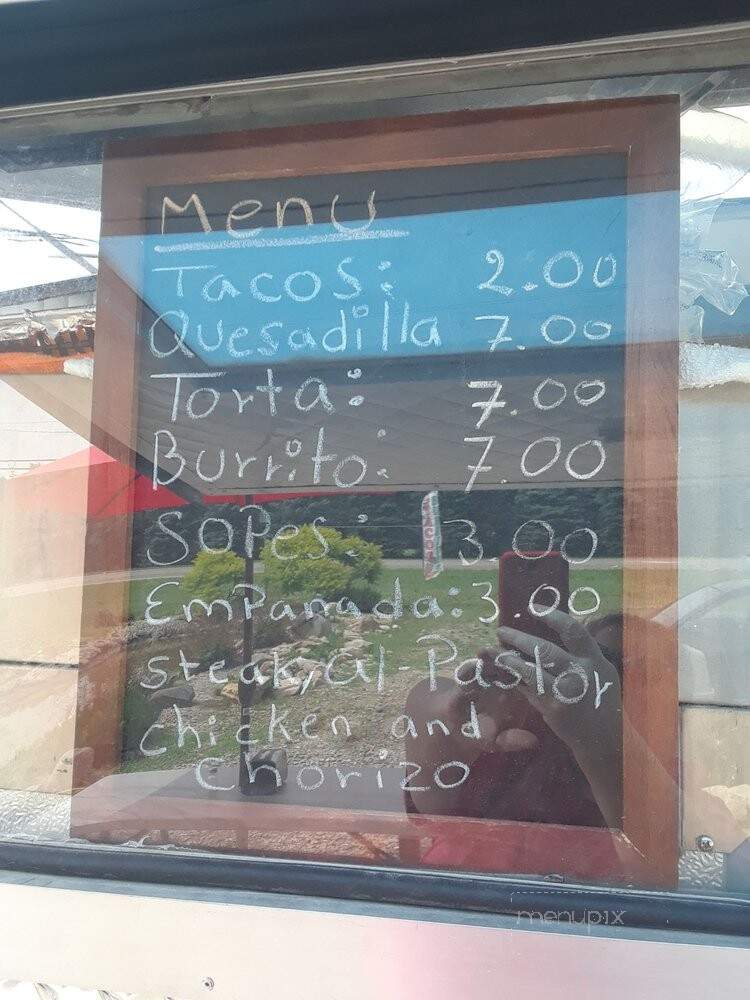 Menu
Tacos: 2.00
Quesadilla 7.00
Torta: 7.00
Burrito: 7.00
SOPes: 3.00
Empanada: 3.00
Steak, al-Pastor
chicken and
Chorizo
TACOS
menupix